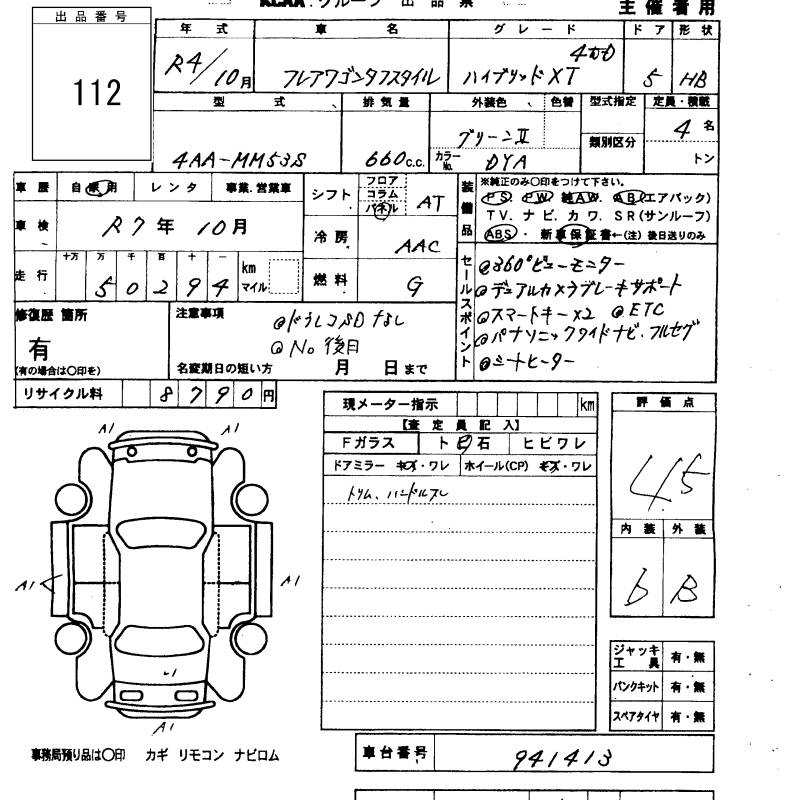 KCAA.グループ 出品票
主催者用
出品番号
112
年式 車名 グレード ドア 形状
R4/10月 フレアワゴンタフスタイル ハイブリッドXT 4WD 5 HB
型式 排気量 外装色 色替 型式指定 定員・積載
4AA-MM53S 660c.c. グリーンII カラーNo. DYA 類別区分 4名
トン
車歴 自家用 レンタ 事業.営業車
車検 R7年10月
走行 十万 万 千 百 十 一
50294 km マイル
シフト フロア コラム パネル AT
冷房 AAC
燃料 G
装備品
※純正のみ〇印をつけて下さい。
PS PW 純AW AB(エアバック)
TV. ナビ. カワ. SR(サンルーフ)
ABS・ 新車保証書←(注) 後日送りのみ
セールスポイント
◎360°ビューモニター
◎デュアルカメラブレーキサポート
◎スマートキー×2 ◎ETC
◎パナソニックワイドナビ.フルセグ
◎シートヒーター
修復歴 箇所
有
(有の場合は〇印を)
注意事項
◎ドラレコSDなし
◎No後日
名変期日の短い方 月 日まで
リサイクル料 8790円
現メーター指示 km
【査定員記入】
Fガラス ト日石 ヒビワレ
ドアミラー キズ・ワレ ホイール(CP) キズ・ワレ
トリム、ハンドルスレ
評価点
4.5
内装 外装
b B
ジャッキ工具 有・無
パンクキット 有・無
スペアタイヤ 有・無
A1 A1
A1 A1
A1
事務局預り品は〇印 カギ リモコン ナビロム
車台番号 941413